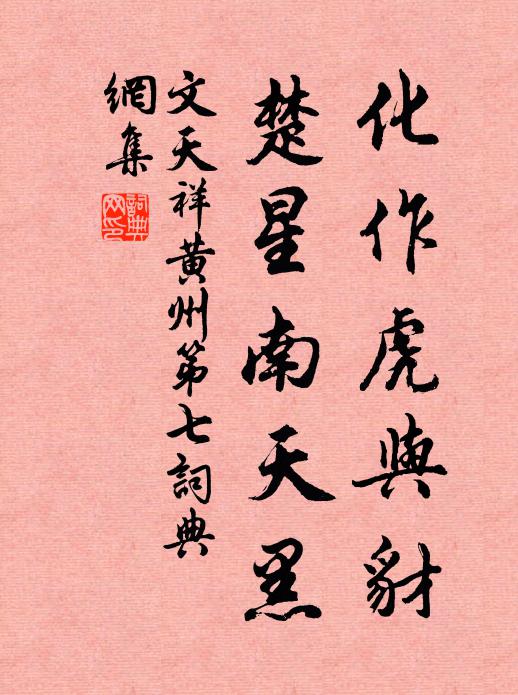 化作虎與豺
楚星南天黑
文天祥黃州第七詞典
網集
詞典
网印